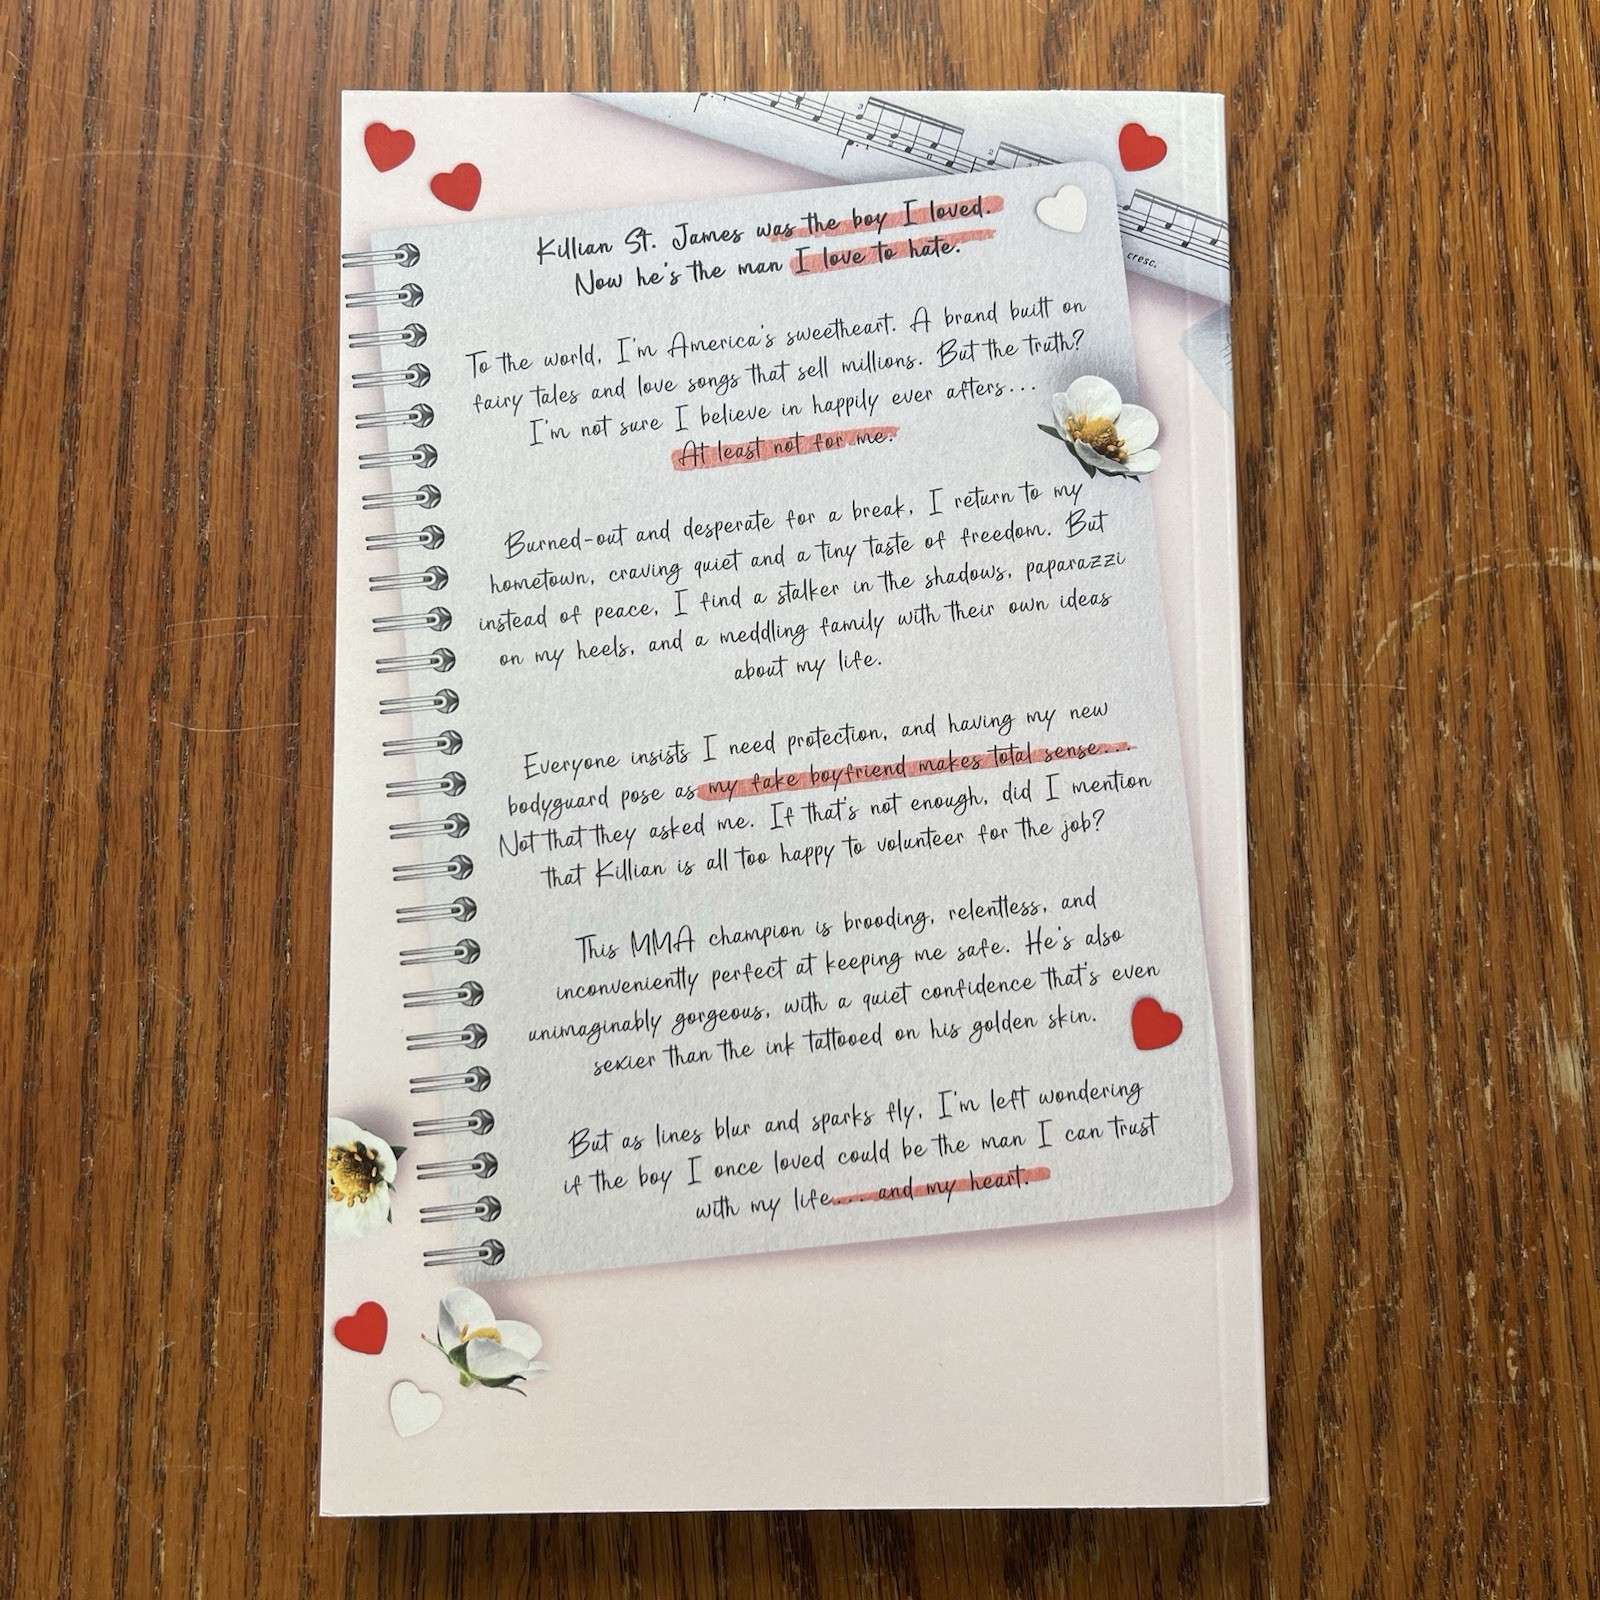 cresc.
Killian St. James was the boy I loved.
Now he's the man I love to hate.
To the world, I'm America's sweetheart. A brand built on
fairy tales and love songs that sell millions. But the truth?
I'm not sure I believe in happily ever afters...
At least not for me.
Burned-out and desperate for a break, I return to my
hometown, craving quiet and a tiny taste of freedom. But
instead of peace, I find a stalker in the shadows, paparazzi
on my heels, and a meddling family with their own ideas
about my life.
Everyone insists I need protection, and having my new
bodyguard pose as my fake boyfriend makes total sense...
Not that they asked me. If that's not enough, did I mention
that Killian is all too happy to volunteer for the job?
This MMA champion is brooding, relentless, and
inconveniently perfect at keeping me safe. He's also
unimaginably gorgeous, with a quiet confidence that's even
sexier than the ink tattooed on his golden skin.
But as lines blur and sparks fly, I'm left wondering
if the boy I once loved could be the man I can trust
with my life... and my heart.